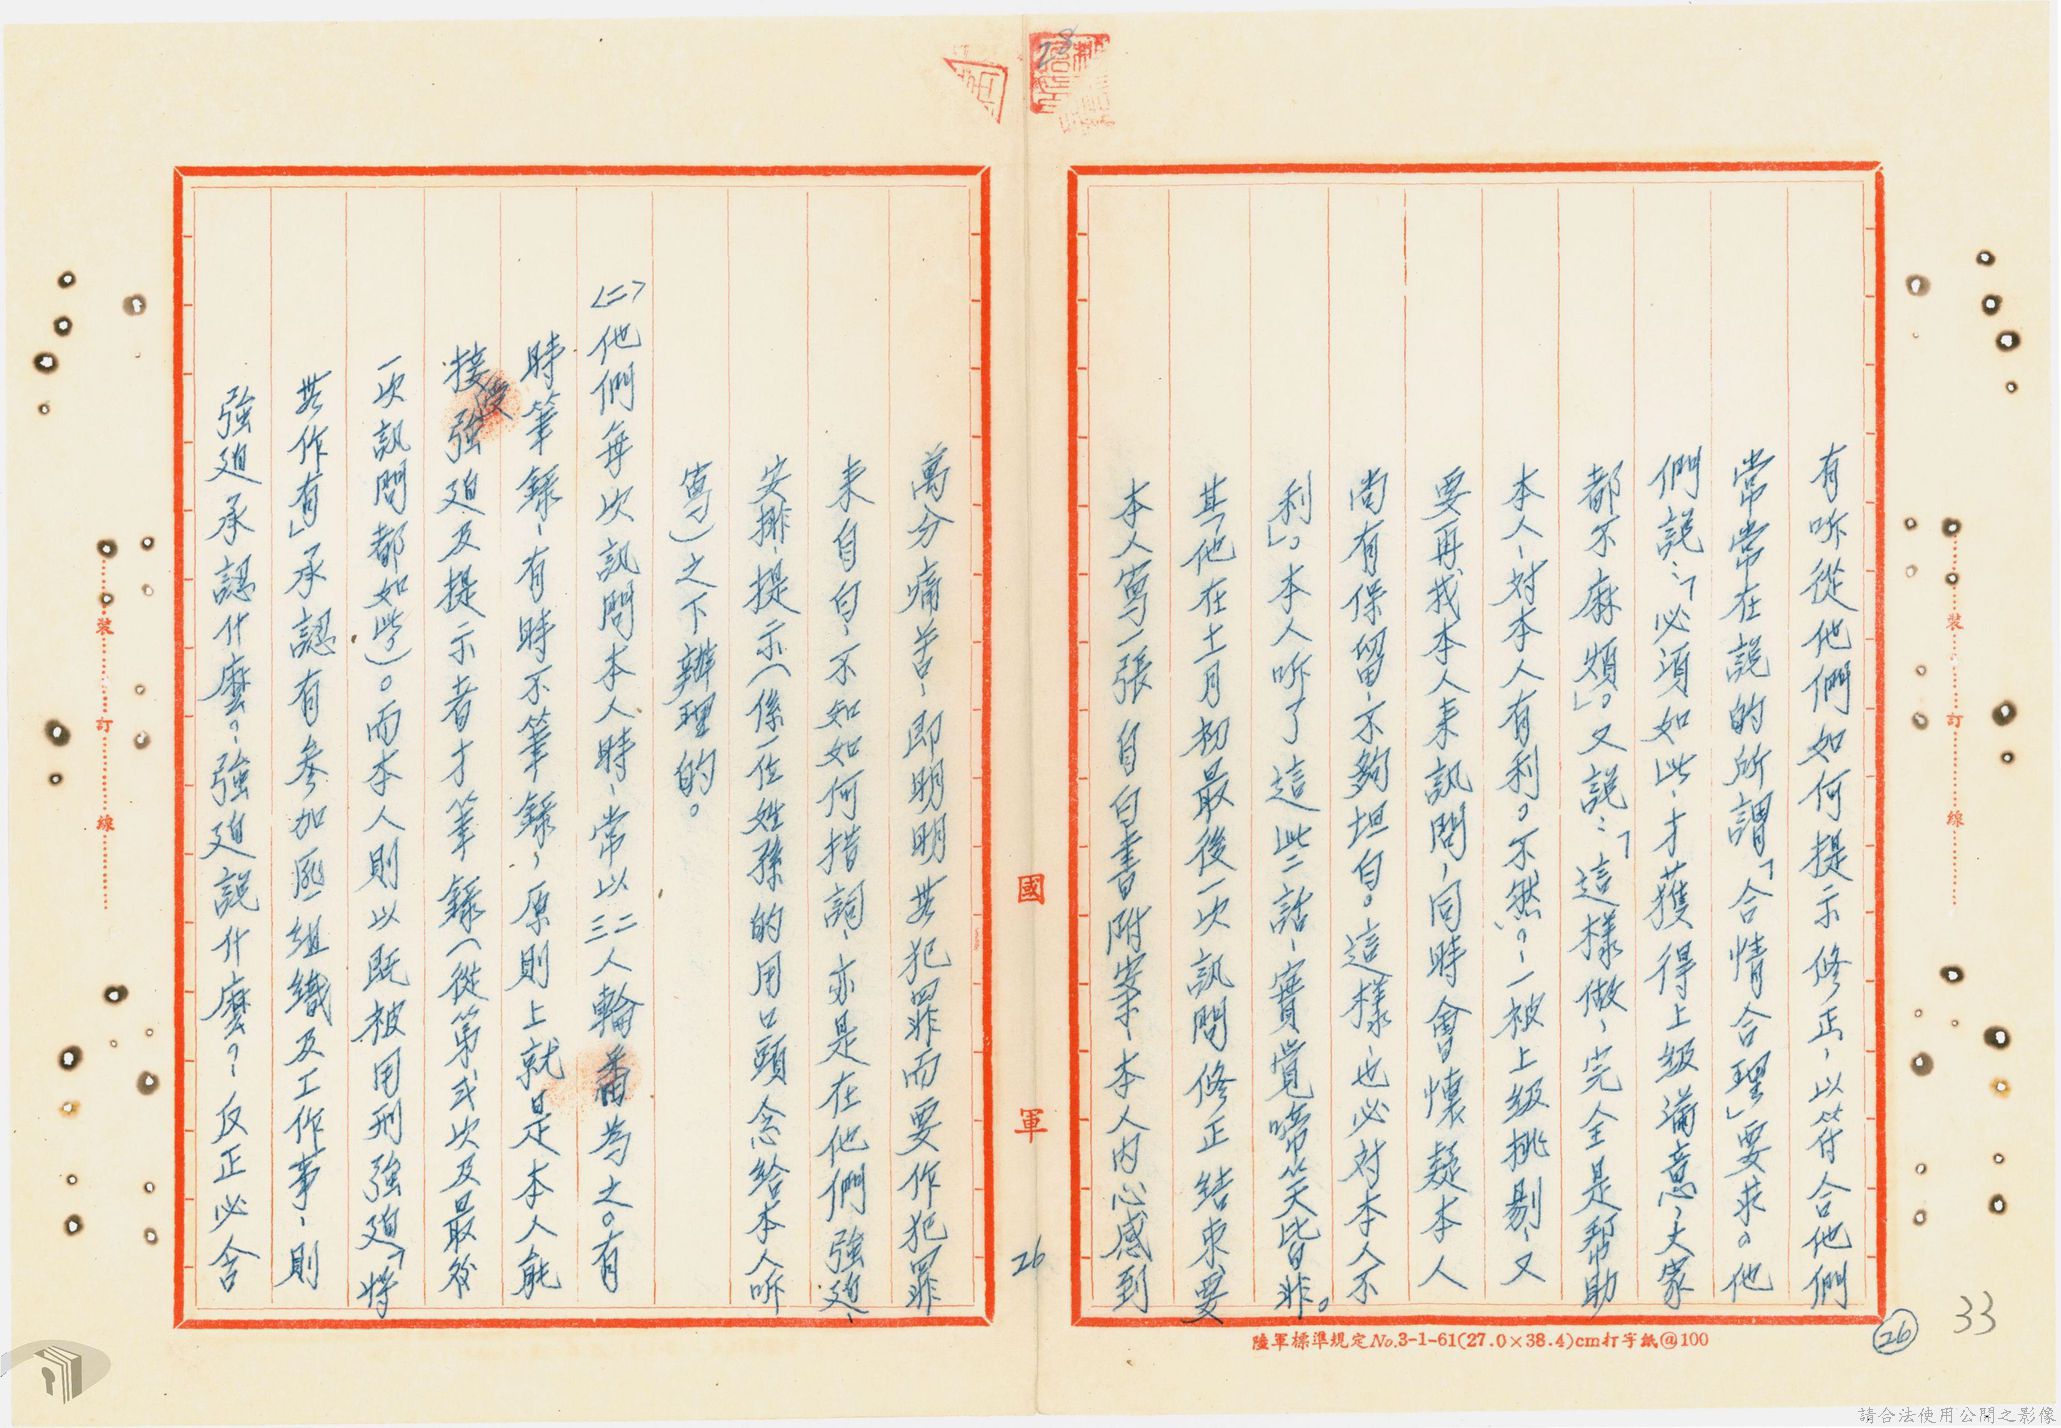 有咋從他們如何提示修正，以符合他們
常常在說的所謂「合情合理」要求。他
們說：「必須如此，才獲得上級滿意，大家
都不麻煩」。又說：「這樣做，完全是幫助
本人，對本人有利。不然。，一被上級挑剔，又
要再找本人來訊問，同時會懷疑本人
尚有保留，不夠坦白。這樣，也必對本人不
利」。本人咋了這些話，實覺啼笑皆非。
其他在十一月初最後一次訊問修正結束，要
本人寫一張自白書附案，本人內心感到
萬分痛苦，即明明無犯罪而要作犯罪
來自白，不知如何措詞，亦是在他們強迫，
安排，提示（係一位姓孫的用口頭念給本人咋
寫）之下辦理的。
〈二〉他們每次訊問本人時，常以三二人輪番為之。有
時筆錄，有時不筆錄，原則上就是本人能
接受強迫及提示者才筆錄（從第弍次及最後
一次訊問都如此）。而本人則以既被用刑強迫「將
無作有」承認有參加匪組織及工作事，則
強迫承認什麼。，強迫說什麼？，反正必含
國軍
26
28
26
33
陸軍標準規定No.3-1-61(27.0×38.4)cm打字紙@100
裝訂線
裝訂線
請合法使用公開之影像